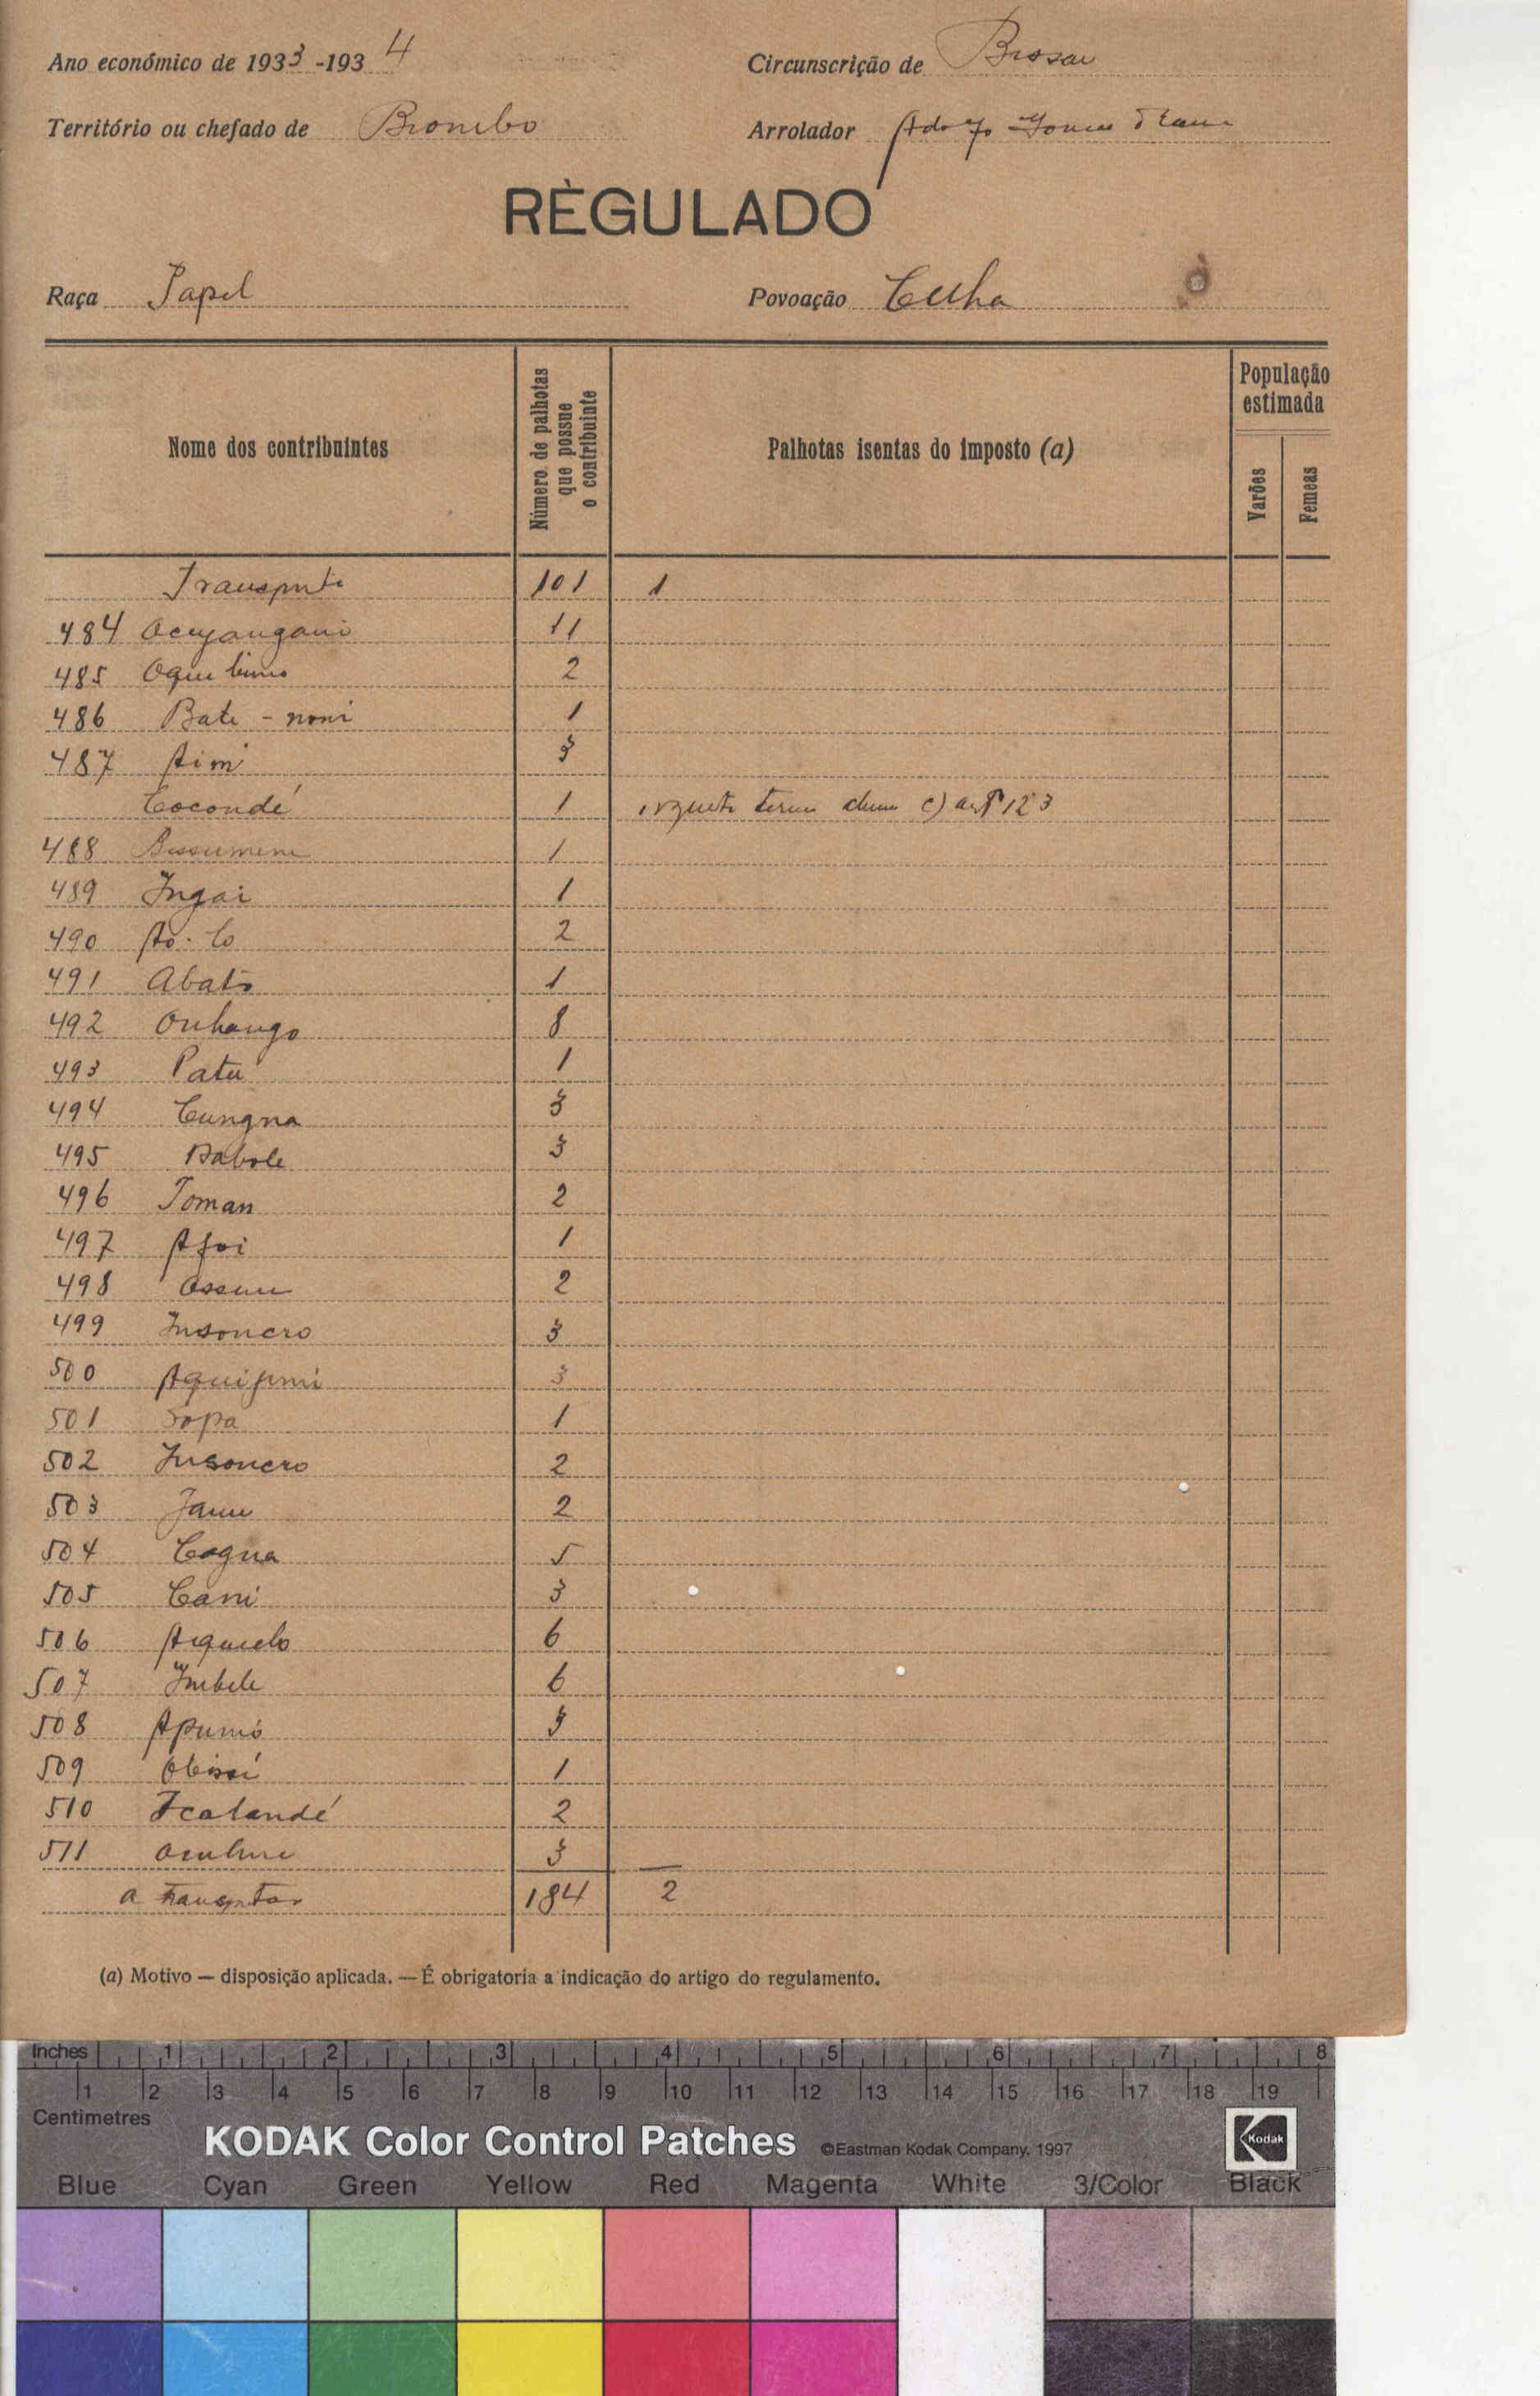 Ano económico de 1933-1934
Circunscrição de
Território ou chefado de Biombo
Arrolador Adolfo Gomes
RÈGULADO
Raça Papel
Povoação Cuha
Nome dos contribuintes
Número de palhotas que possue o contribuinte
Palhotas isentas do imposto (a)
População estimada
Varões
Femeas
Transporte 101 1
484 11
485 2
486 Bate-noni 1
487 Aim 3
Cocondé 1 c) artº 123
488 1
489 Ingai 1
490 Ao-Co 2
491 Abato 1
492 Onhango 8
493 Patu 1
494 Cungna 3
495 Babole 3
496 Toman 2
497 Afoi 1
498 2
499 Insoncro 3
500 3
501 Sopa 1
502 Insoncro 2
503 2
504 Cogna 5
505 Cani 3
506 6
507 Imbele 6
508 Apumó 3
509 1
510 Icatandé 2
511 3
a transportar 184 2
(a) Motivo — disposição aplicada. — É obrigatoria a indicação do artigo do regulamento.
Inches 1 2 3 4 5 6 7 8
1 2 3 4 5 6 7 8 9 10 11 12 13 14 15 16 17 18 19
Centimetres
KODAK Color Control Patches ©Eastman Kodak Company, 1997 Kodak
Blue Cyan Green Yellow Red Magenta White 3/Color Black